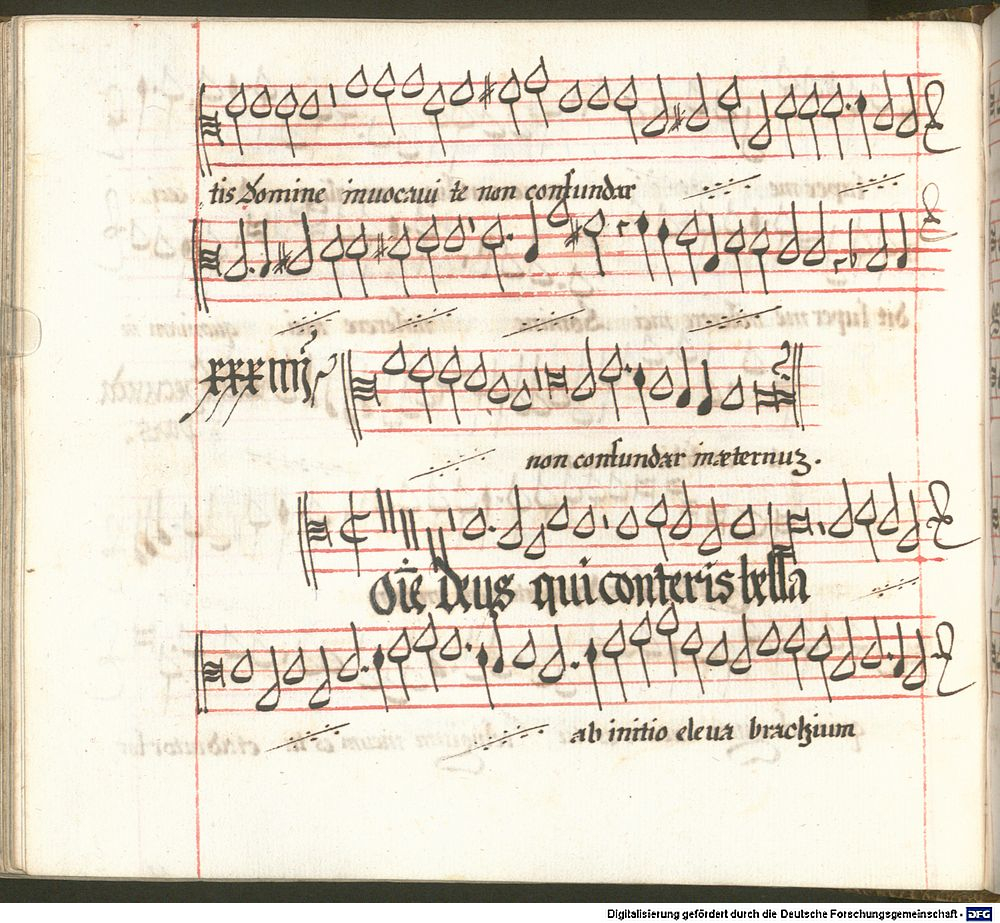 tis Domine inuocaui te non confundar
xxxiiij
non confundar inæternuz.
Oīe Deus qui conteris bella
ab initio eleua brachium
Digitalisierung gefördert durch die Deutsche Forschungsgemeinschaft - DFG